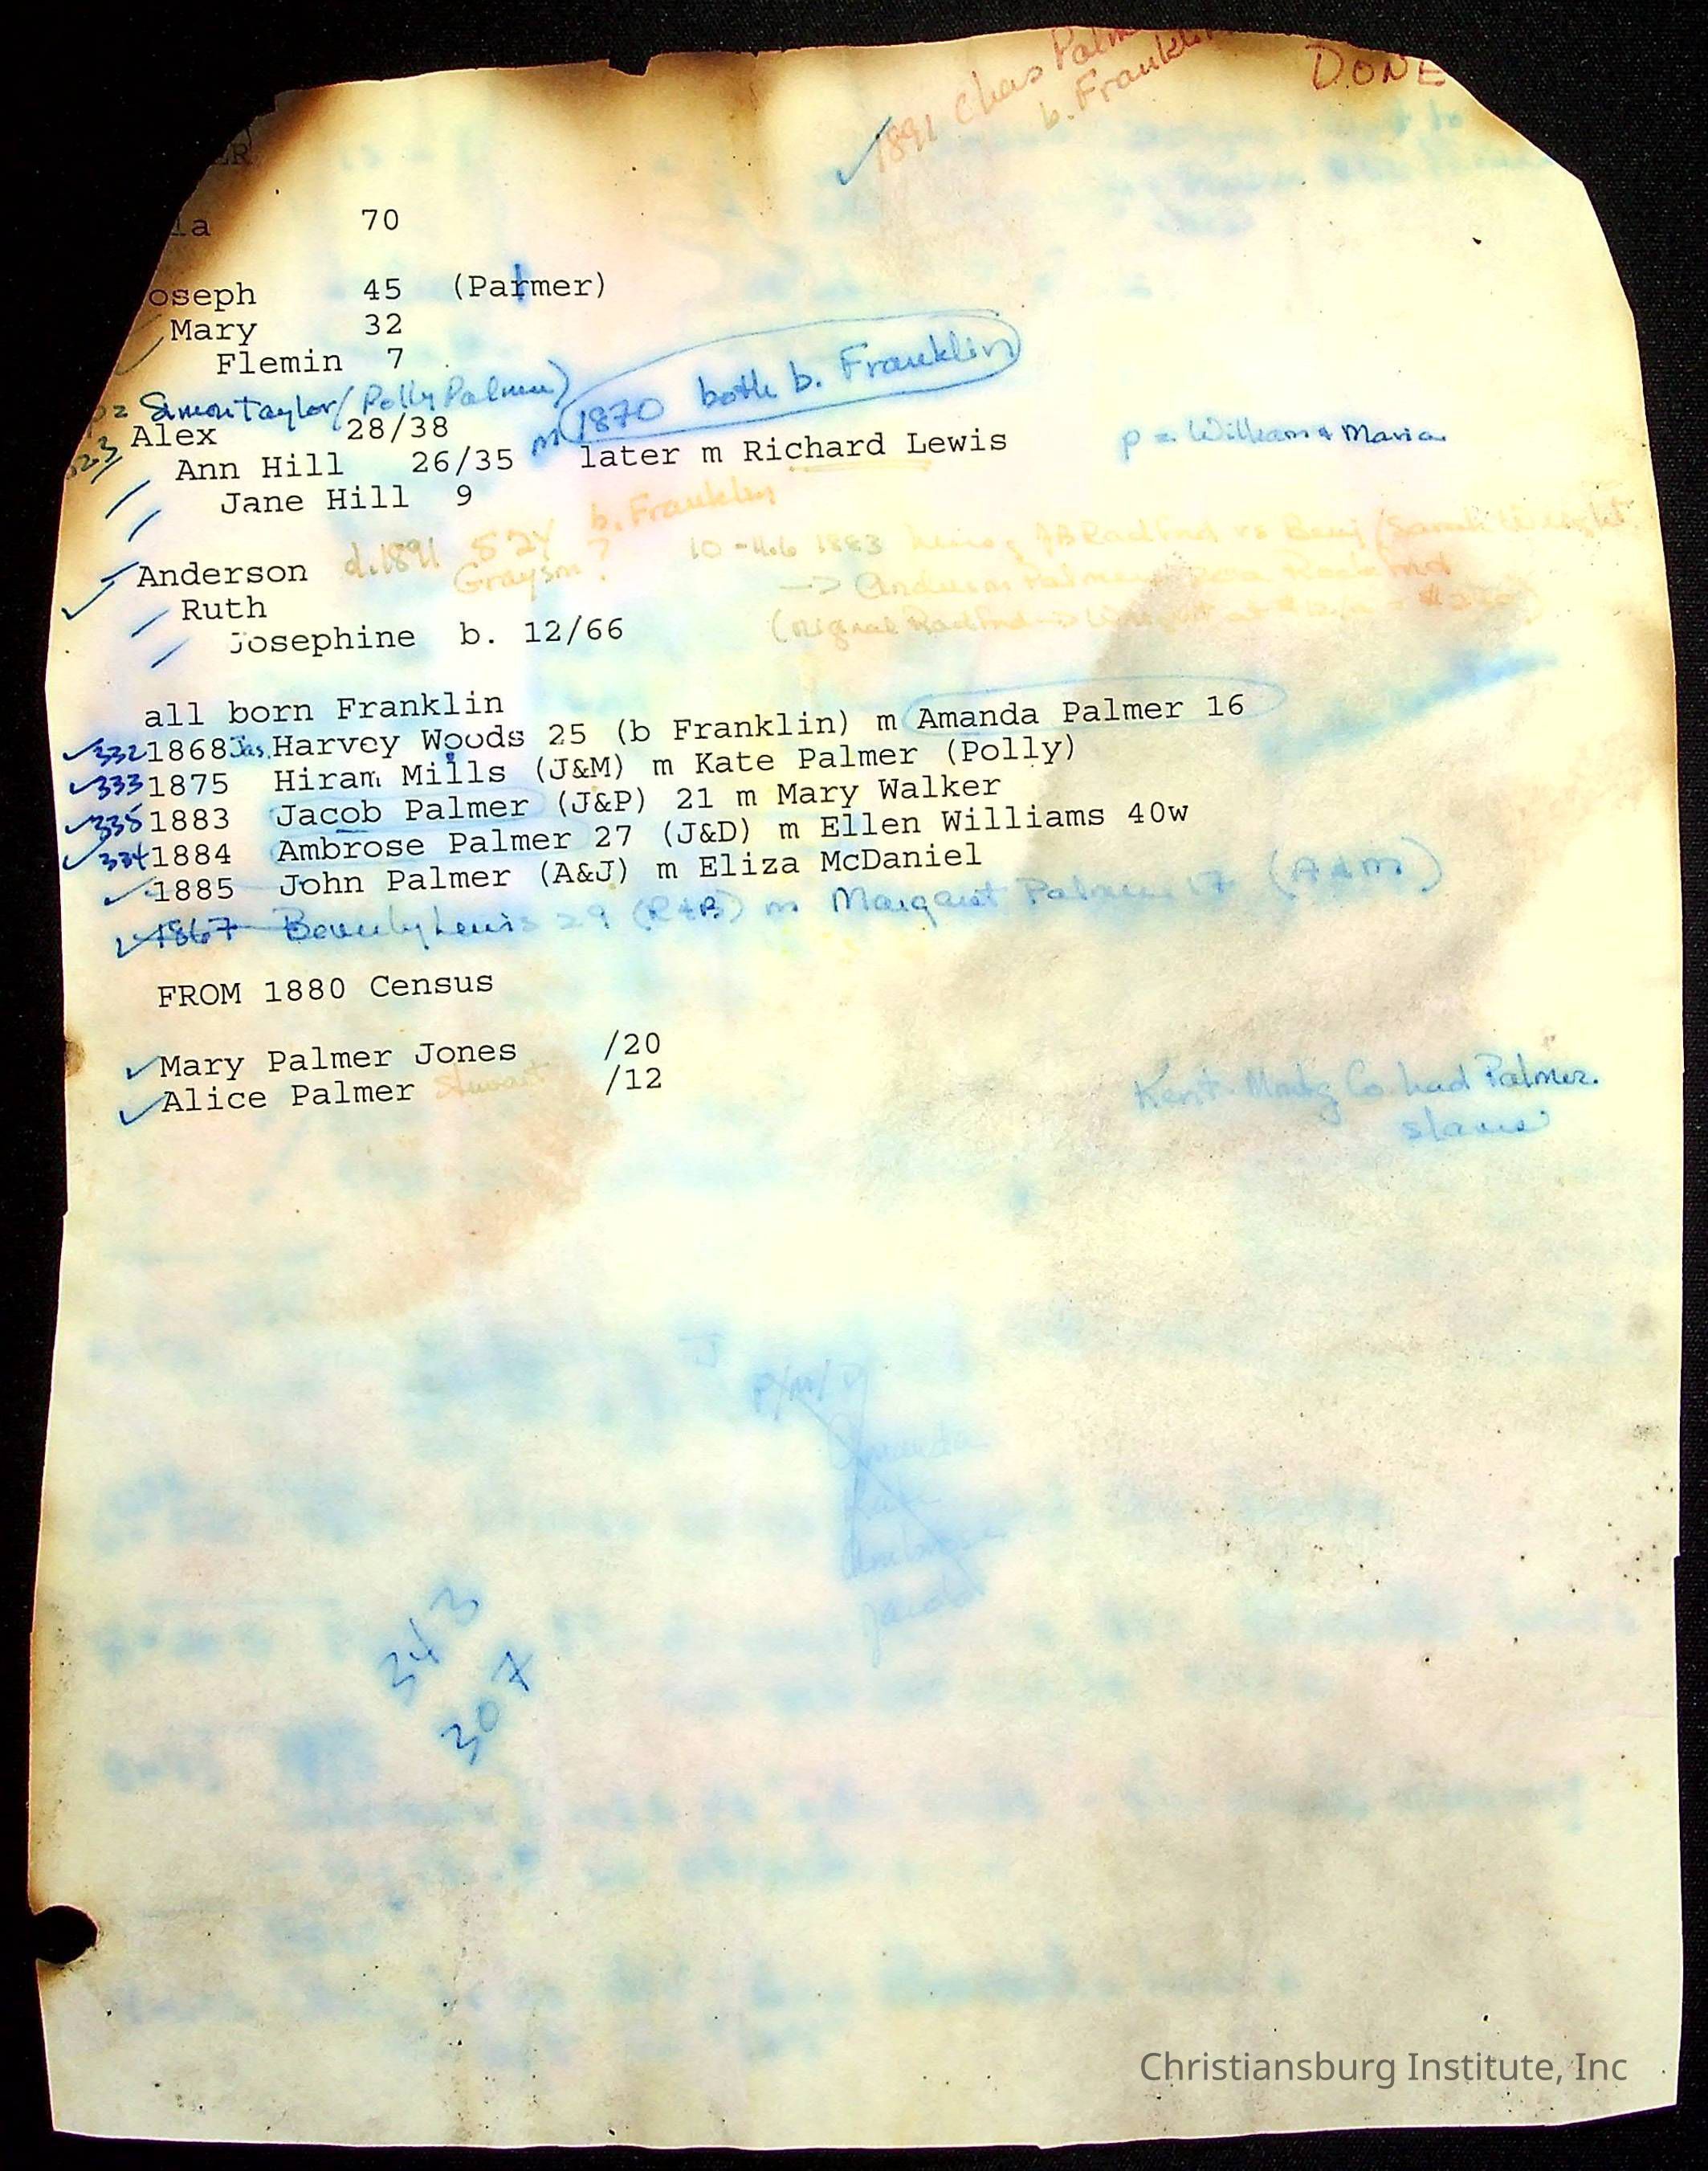 1891 Chas Palm
b. Frankl
DONE
ER
la 70
oseph 45 (Palmer)
Mary 32
Flemin 7
p= Simon Taylor/(Polly Palmer)
m 1870 both b. Franklin
Alex 28/38
523
Ann Hill 26/35 later m Richard Lewis p = William & Maria
Jane Hill 9
Anderson d. 1891 52Y b. Franklin
Grayson?
10 1883 AB Radford vs Benj (Sarah Wright
→ Anderson Palmer
Ruth
(original Radford → Wright at
Josephine b. 12/66
all born Franklin
332 1868 Jas. Harvey Woods 25 (b Franklin) m Amanda Palmer 16
333 1875 Hiram Mills (J&M) m Kate Palmer (Polly)
335 1883 Jacob Palmer (J&P) 21 m Mary Walker
334 1884 Ambrose Palmer 27 (J&D) m Ellen Williams 40w
1885 John Palmer (A&J) m Eliza McDaniel
1867 Beverly Lewis 29 (R&B) m Margaret Palmer 17 (A&M)
FROM 1880 Census
Mary Palmer Jones /20
Alice Palmer Stewart /12
Kent Montg Co. had Palmer
slaves
J
P/M/D
Amanda
Kate
Ambrose
Jacob
343
307
Christiansburg Institute, Inc